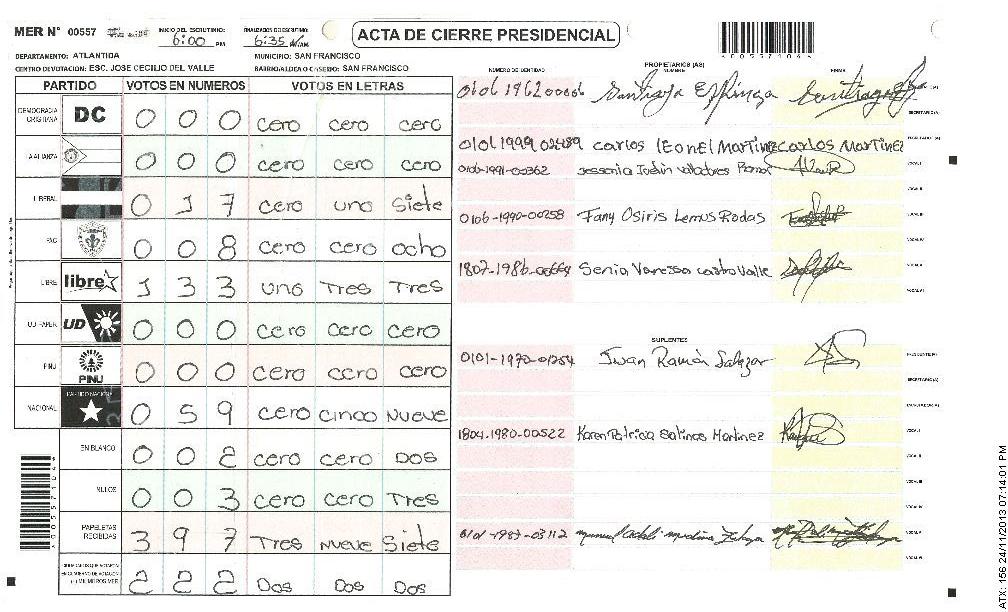 MER N° 00557 INICIO DEL ESCRUTINIO: 6:00 PM FINALIZACION DE ESCRUTINIO: 6:35 AM. ACTA DE CIERRE PRESIDENCIAL
DEPARTAMENTO: ATLANTIDA MUNICIPIO: SAN FRANCISCO
CENTRO DE VOTACION: ESC. JOSE CECILIO DEL VALLE SAN FRANCISCO
PARTIDO VOTOS EN NUMEROS VOTOS EN LETRAS
DEMOCRACIA CRISTIANA DC 0 0 0 cero cero cero
ALIANZA 0 0 0 cero cero cero
LIBERAL 0 1 7 cero uno siete
PAC 0 0 8 cero cero ocho
LIBRE libre 1 3 3 uno Tres Tres
UD 0 0 0 cero cero cero
PINU PINU 0 0 0 cero cero cero
NACIONAL PARTIDO NACIONAL 0 5 9 cero cinco nueve
EN BLANCO 0 0 2 cero cero Dos
NULOS 0 0 3 cero cero Tres
PAPELETAS RECIBIDAS 3 9 7 Tres nueve siete
2 2 2 Dos Dos Dos
NUMERO DE IDENTIDAD PROPIETARIOS (AS) NOMBRE FIRMA
0101 1962 00006 Santiago Espinoza
carlos leonel Martinez carlos Martinez
0106-1991-00362
0106-1990-00258 Fany Osiris Lemus Rodas
Senia Vanessa castro Valle
SUPLENTES
0101-1970-01254 Juan Ramón Salazar
1804-1980-00522 Karen Patricia Salinas Martinez
0101-1987-03112
ATX: 156 24/11/2013 07:14:01 PM